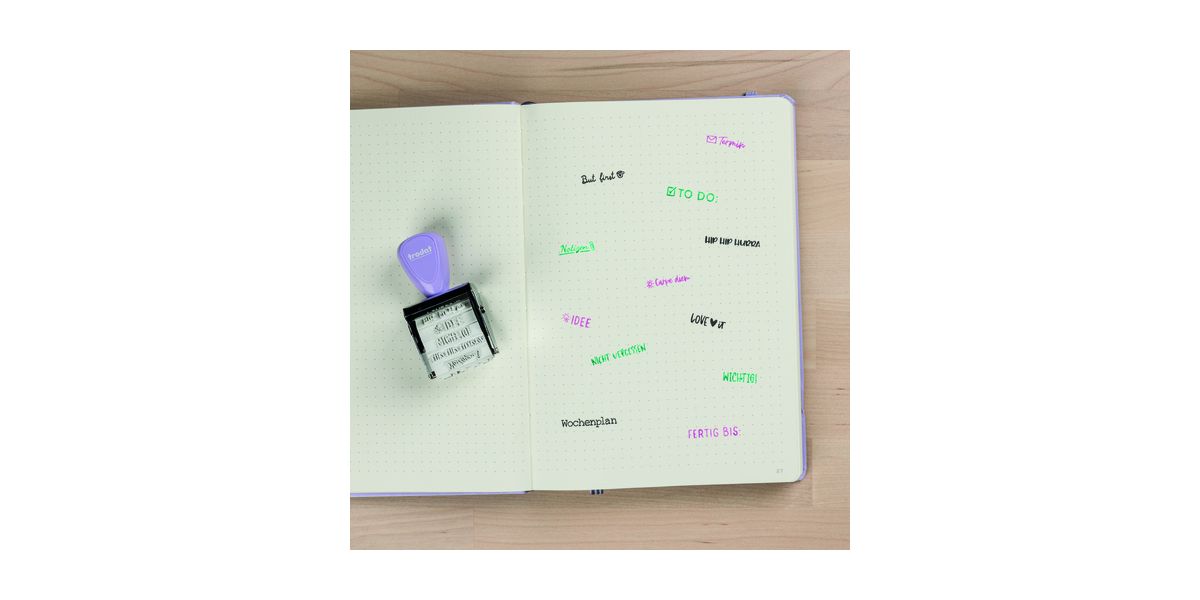 Termin
But first
TO DO:
Notizen
HIP HIP HURRA
Carpe diem
IDEE
LOVE it
NICHT VERGESSEN
WICHTIG!
Wochenplan
FERTIG BIS:
trodat